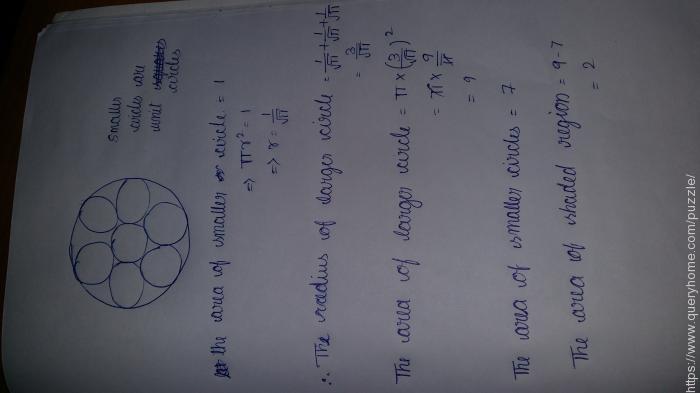 smaller
circles are
unit
circles
the area of smaller circle = 1
=> πr² = 1
=> r = 1/√π
∴ The radius of larger circle = 1/√π + 1/√π + 1/√π
= 3/√π
The area of larger circle = π × (3/√π)²
= π × 9/π
= 9
The area of smaller circles = 7
The area of shaded region = 9-7
= 2
https://www.queryhome.com/puzzle/